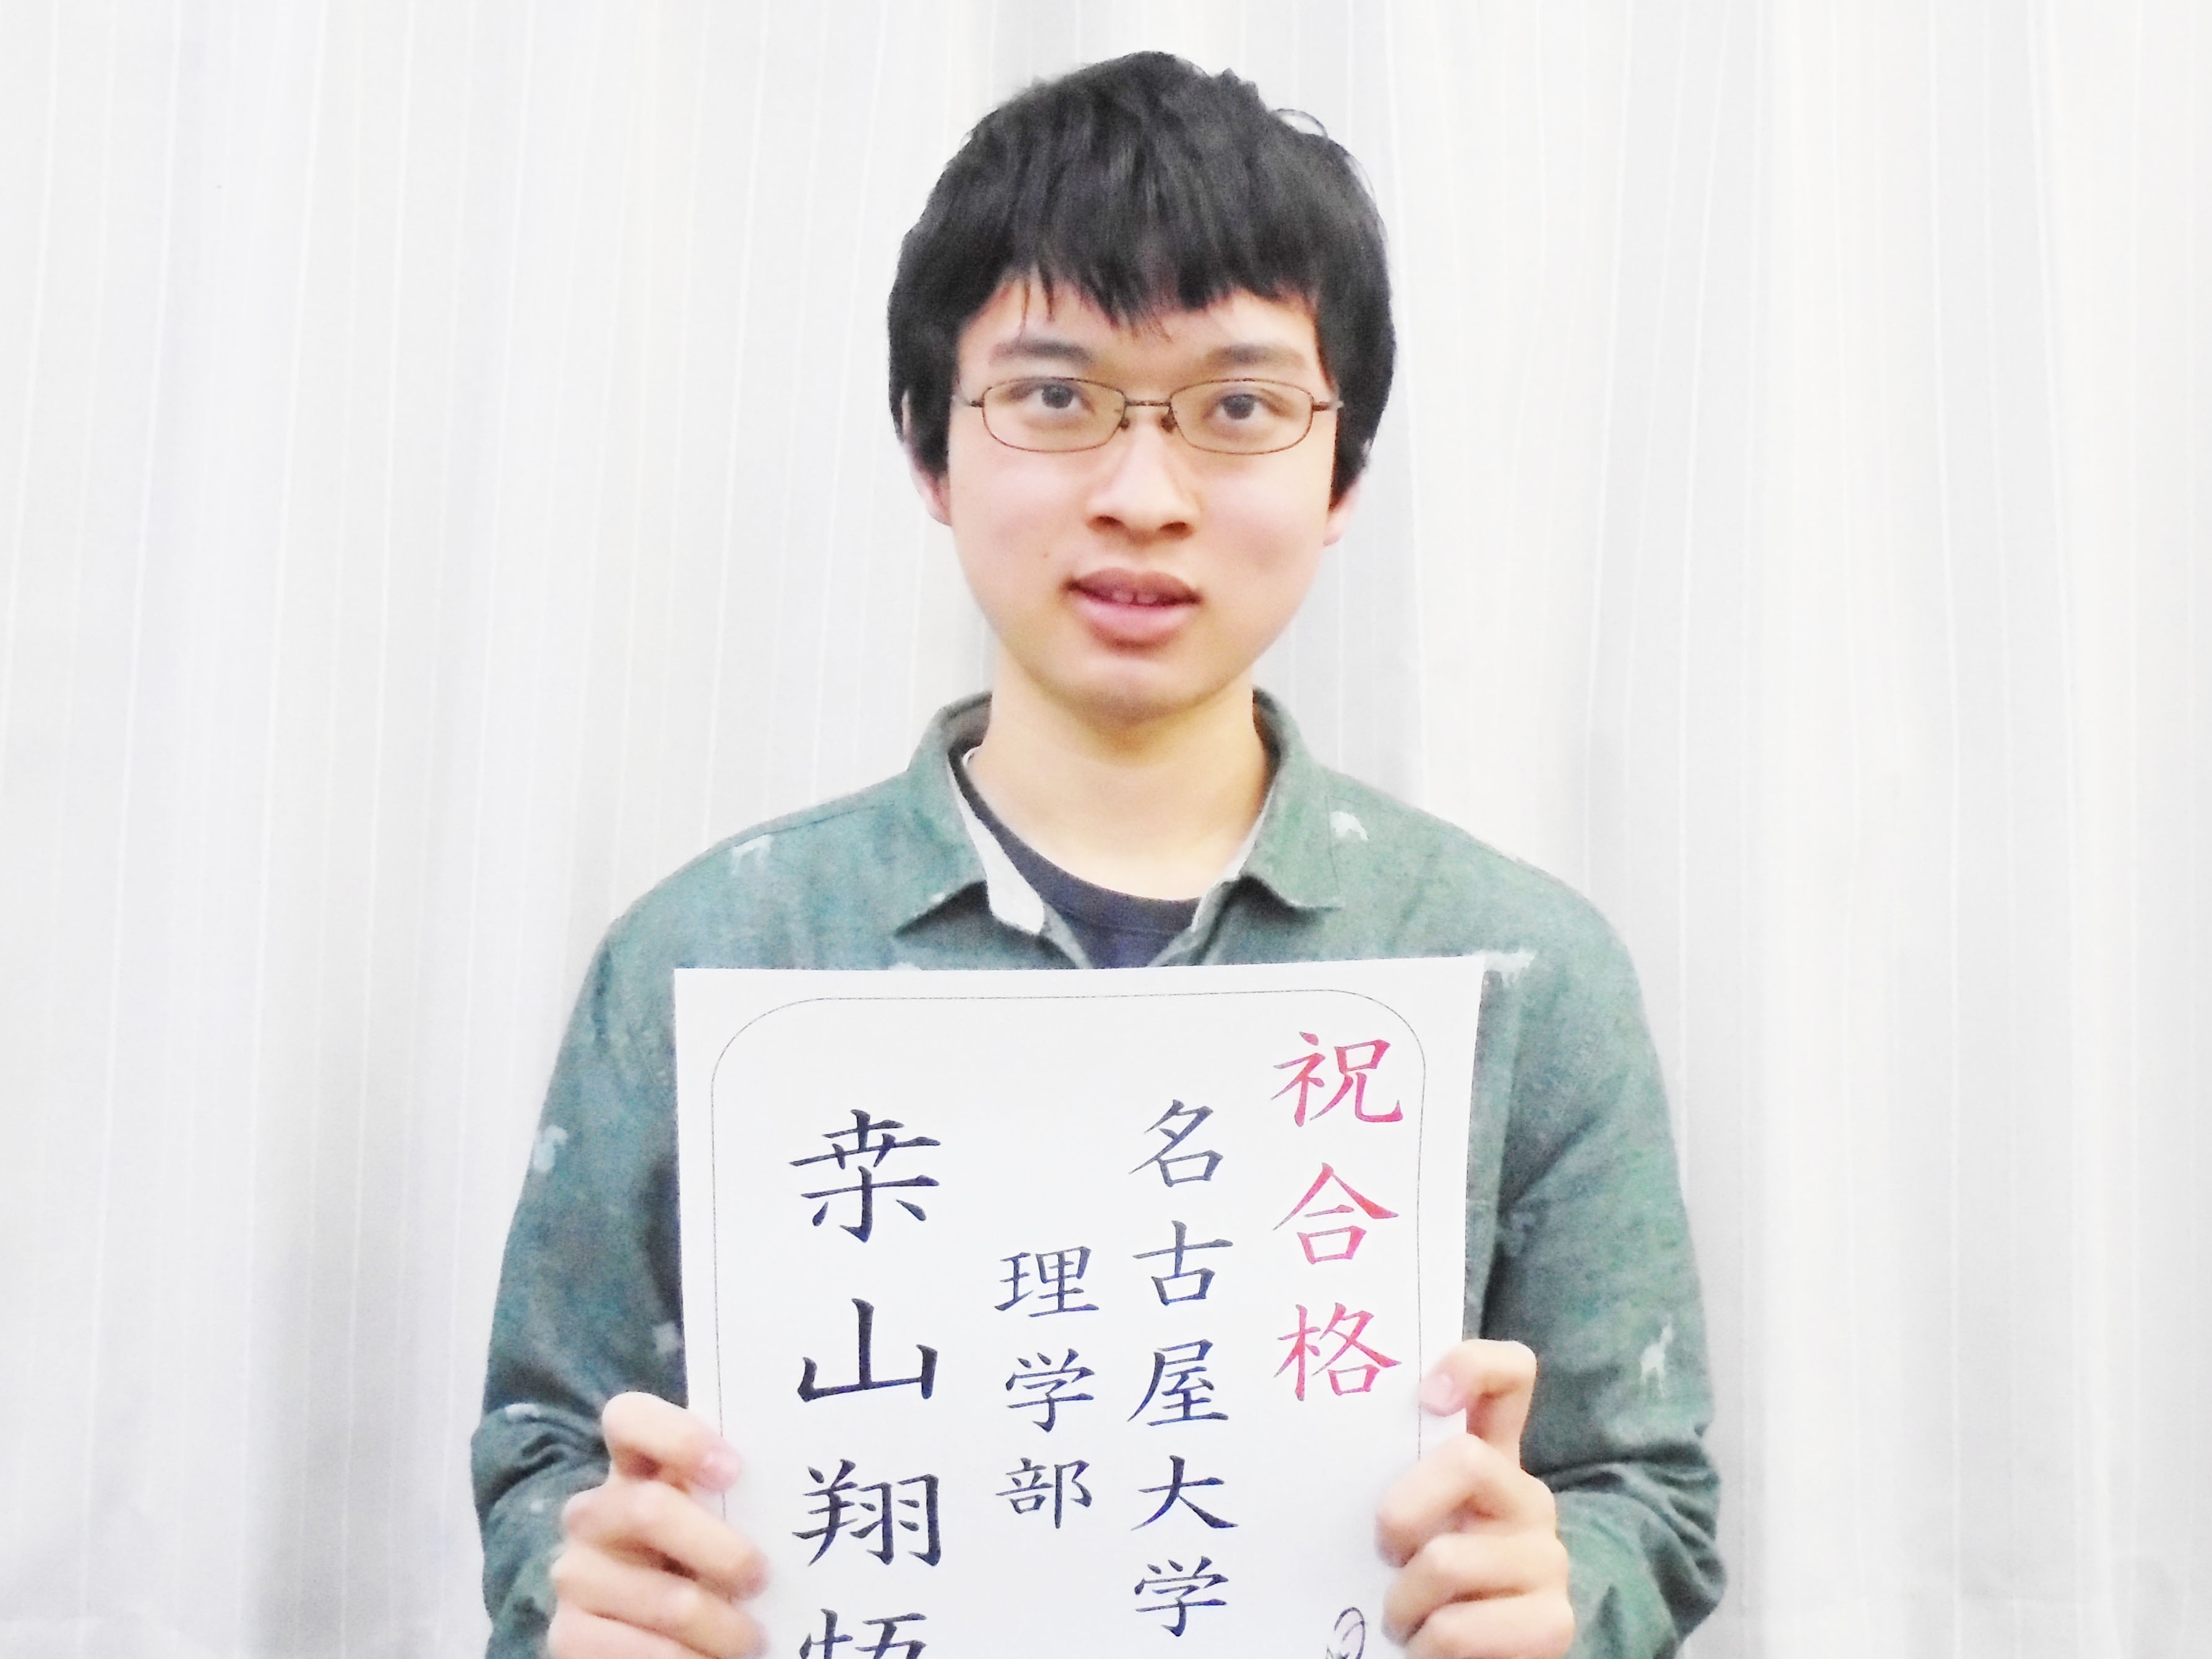 祝合格
名古屋大学
理学部
桒山翔悟